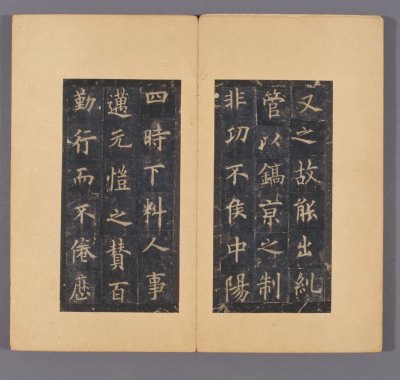 又之故能出糺
管以鎬亰之制
非功不侯中陽
四時下料人事
邁元愷之賛百
勤行而不倦歷